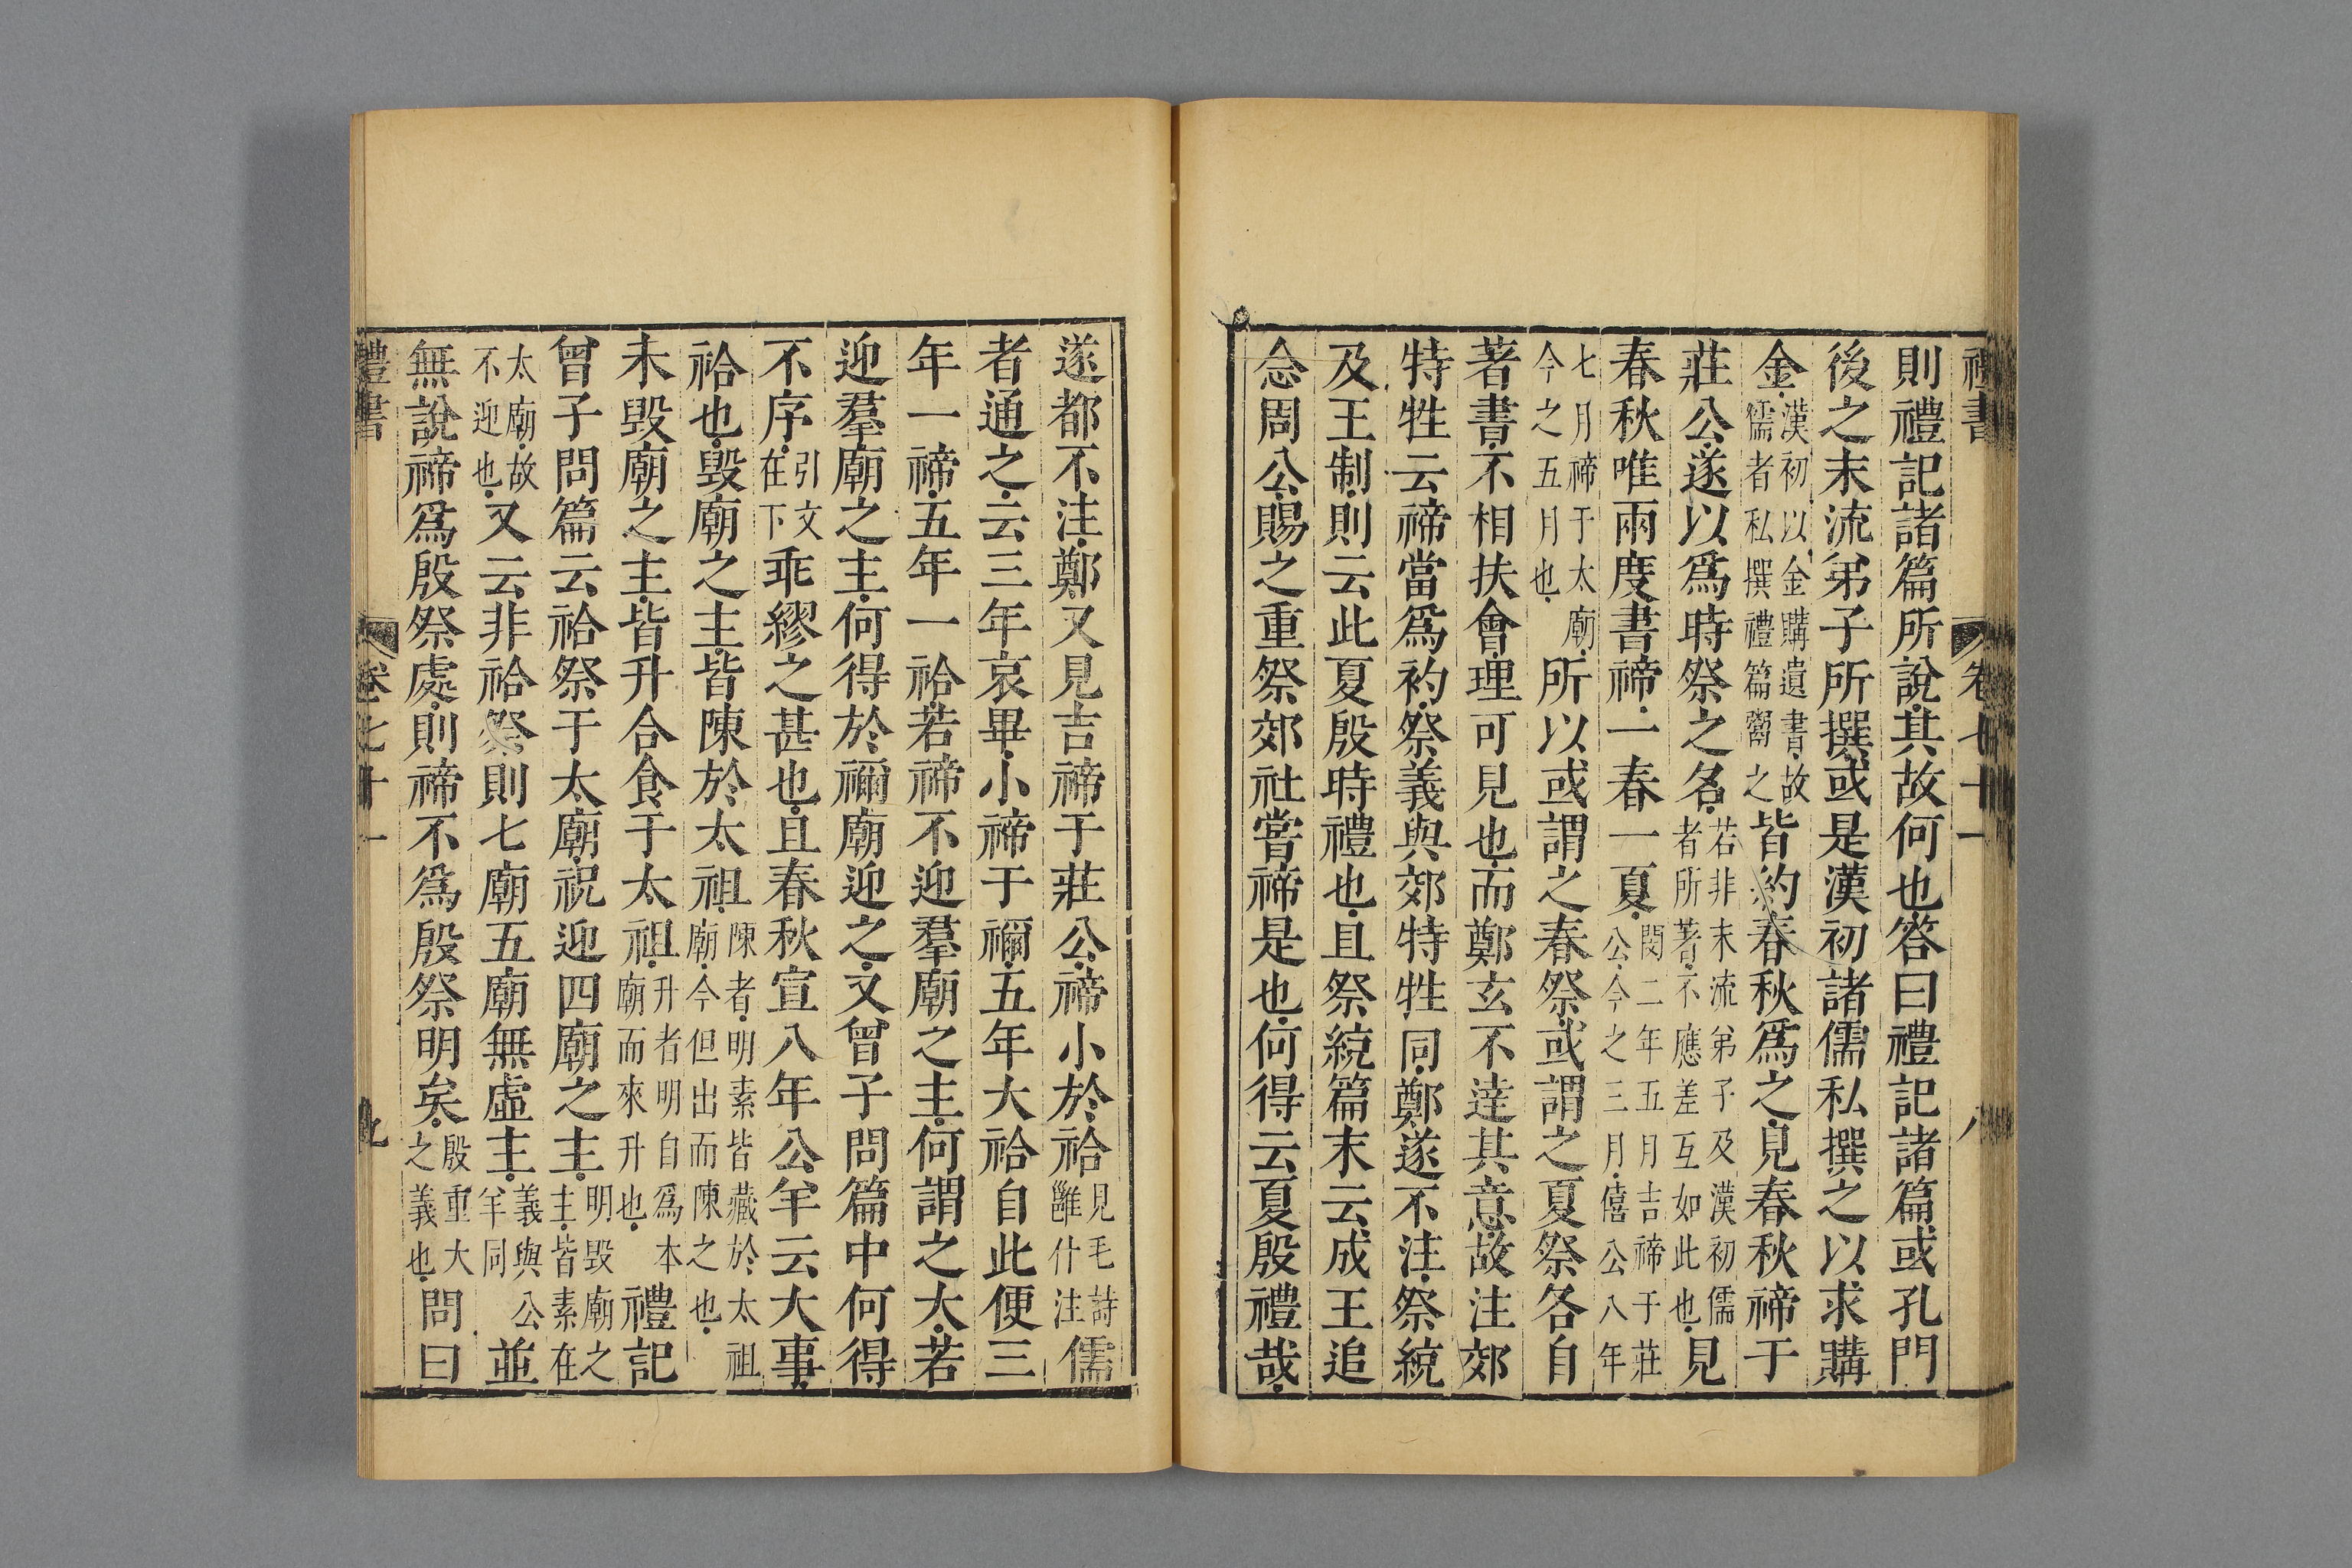 禮書 卷七十一 八
則禮記諸篇所說其故何也答曰禮記諸篇或孔門
後之末流弟子所撰或是漢初諸儒私撰之以求購
金漢初以金購遺書故儒者私撰禮篇鬻之皆約春秋爲之見春秋禘于
莊公遂以爲時祭之名若非末流弟子及漢初儒者所著不應差互如此也見
春秋唯兩度書禘一春一夏閔二年五月吉禘于莊公今之三月僖公八年
七月禘于太廟今之五月也所以或謂之春祭或謂之夏祭各自
著書不相扶會理可見也而鄭玄不達其意故注郊
特牲云禘當爲礿祭義與郊特牲同鄭遂不注祭統
及王制則云此夏殷時禮也且祭統篇末云成王追
念周公賜之重祭郊社嘗禘是也何得云夏殷禮哉
遂都不注鄭又見吉禘于莊公禘小於祫見毛詩雝什注儒
者通之云三年哀畢小禘于禰五年大祫自此便三
年一禘五年一祫若禘不迎羣廟之主何謂之大若
迎羣廟之主何得於禰廟迎之文曾子問篇中何得
不序引文在下乖繆之甚也且春秋宣八年公羊云大事
祫也毀廟之主皆陳於太祖陳者明素皆藏於太祖廟今但出而陳之也
未毀廟之主皆升合食于太祖升者明自爲本廟而來升也禮記
曾子問篇云祫祭于太廟祝迎四廟之主明毀廟之主皆素在
太廟故不迎也又云非祫祭則七廟五廟無虛主義與公羊同並
無說禘爲殷祭處則禘不爲殷祭明矣殷重大之義也問曰
禮書 卷七十一 九